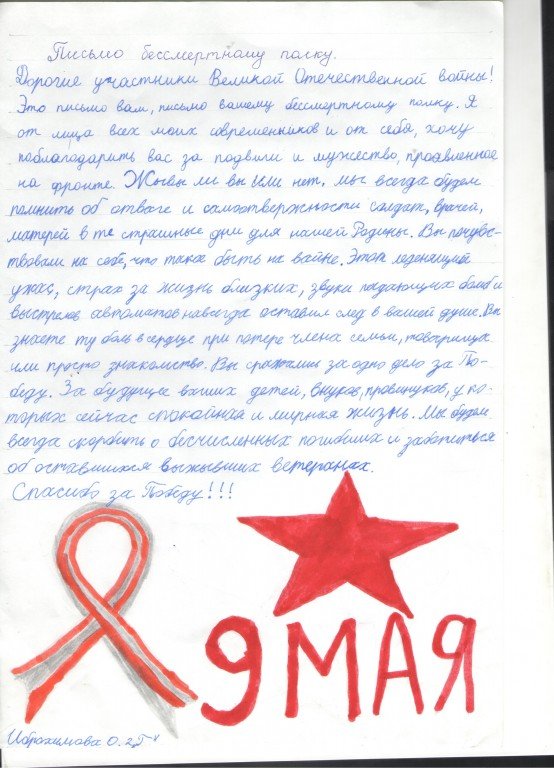 Письмо бессмертному полку.
Дорогие участники Великой Отечественной войны!
Это письмо вам, письмо вашему бессмертному полку. Я
от лица всех моих современников и от себя, хочу
поблагодарить вас за подвиги и мужество, проявленное
на фронте. Жывы ли вы или нет, мы всегда будем
помнить об отваге и самоотвержности солдат, врачей,
матерей в те страшные дни для нашей Родины. Вы почувс-
твовали на себе, что такое быть на войне. Этот леденящий
ужас, страх за жизнь близких, звуки падающих бомб и
выстрелов автоматов навсегда оставил след в вашей душе. Вы
знаете ту боль в сердце при потере члена семьи, товарища
или просто знакомство. Вы сражались за одно дело за По-
беду. За будущее ваших детей, внуков, правнуков, у ко-
торых сейчас спокойная и мирная жизнь. Мы будем
всегда скорбить о бесчисленных погибших и заботиться
об оставшихся выжывших ветеранах.
Спасибо за Победу!!!
9 МАЯ
Иброхимова О. 2"Г"